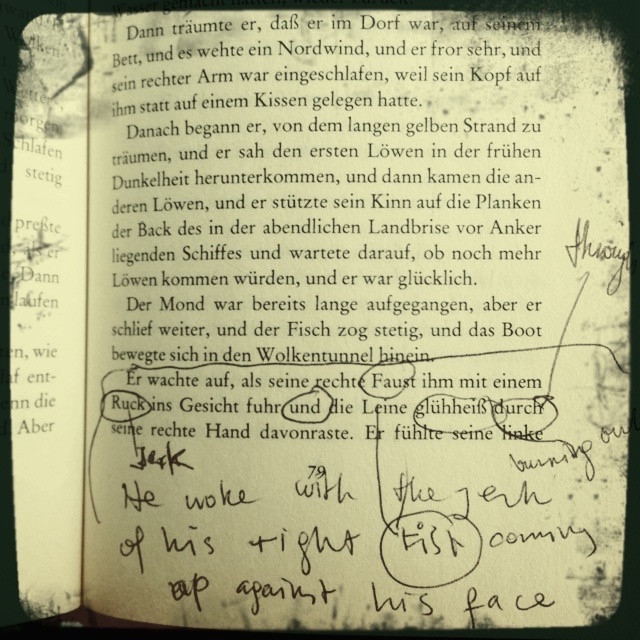 Wasser gemacht hatten, wieder zurück.
Dann träumte er, daß er im Dorf war, auf seinem
Bett, und es wehte ein Nordwind, und er fror sehr, und
sein rechter Arm war eingeschlafen, weil sein Kopf auf
ihm statt auf einem Kissen gelegen hatte.
Danach begann er, von dem langen gelben Strand zu
träumen, und er sah den ersten Löwen in der frühen
Dunkelheit herunterkommen, und dann kamen die an-
deren Löwen, und er stützte sein Kinn auf die Planken
der Back des in der abendlichen Landbrise vor Anker
liegenden Schiffes und wartete darauf, ob noch mehr
Löwen kommen würden, und er war glücklich.
Der Mond war bereits lange aufgegangen, aber er
schlief weiter, und der Fisch zog stetig, und das Boot
bewegte sich in den Wolkentunnel hinein.
Er wachte auf, als seine rechte Faust ihm mit einem
Ruck ins Gesicht fuhr und die Leine glühheiß durch
seine rechte Hand davonraste. Er fühlte seine linke
burning
Jerk
79
He woke with the jerk
of his right fist coming
up against his face
schlafen
stetig
preßte
Dann
ten, wie
af ent-
nn die
. Aber